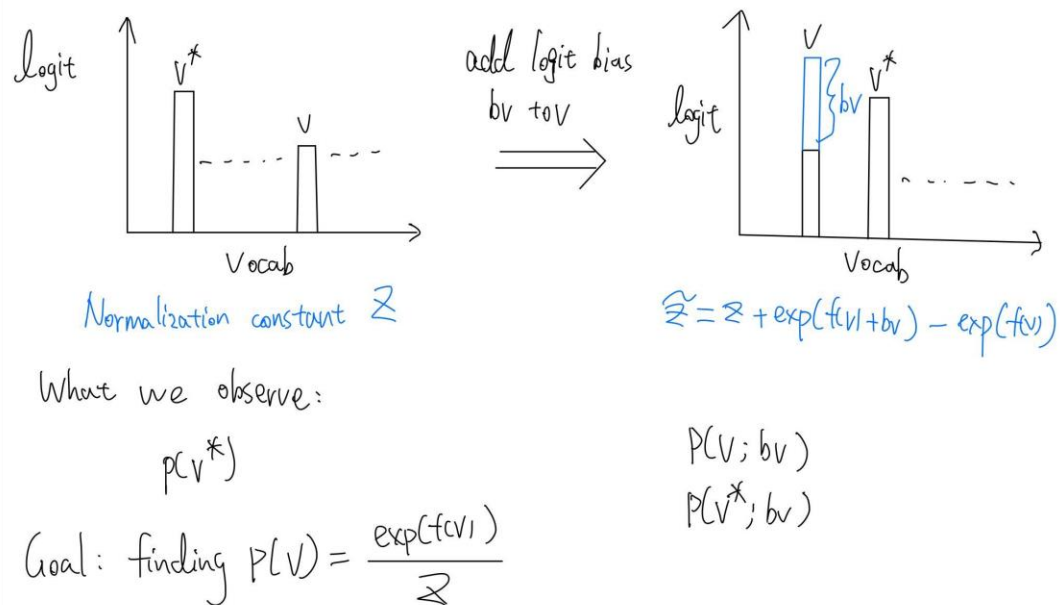 logit
V*
V
Vocab
Normalization constant Z
add logit bias
bv to V
logit
V
bv
V*
Vocab
Z̃ = Z + exp(f(v)+bv) - exp(f(v))
What we observe:
p(v*)
P(V; bv)
P(V*; bv)
Goal: finding P(V) = exp(f(v)) / Z